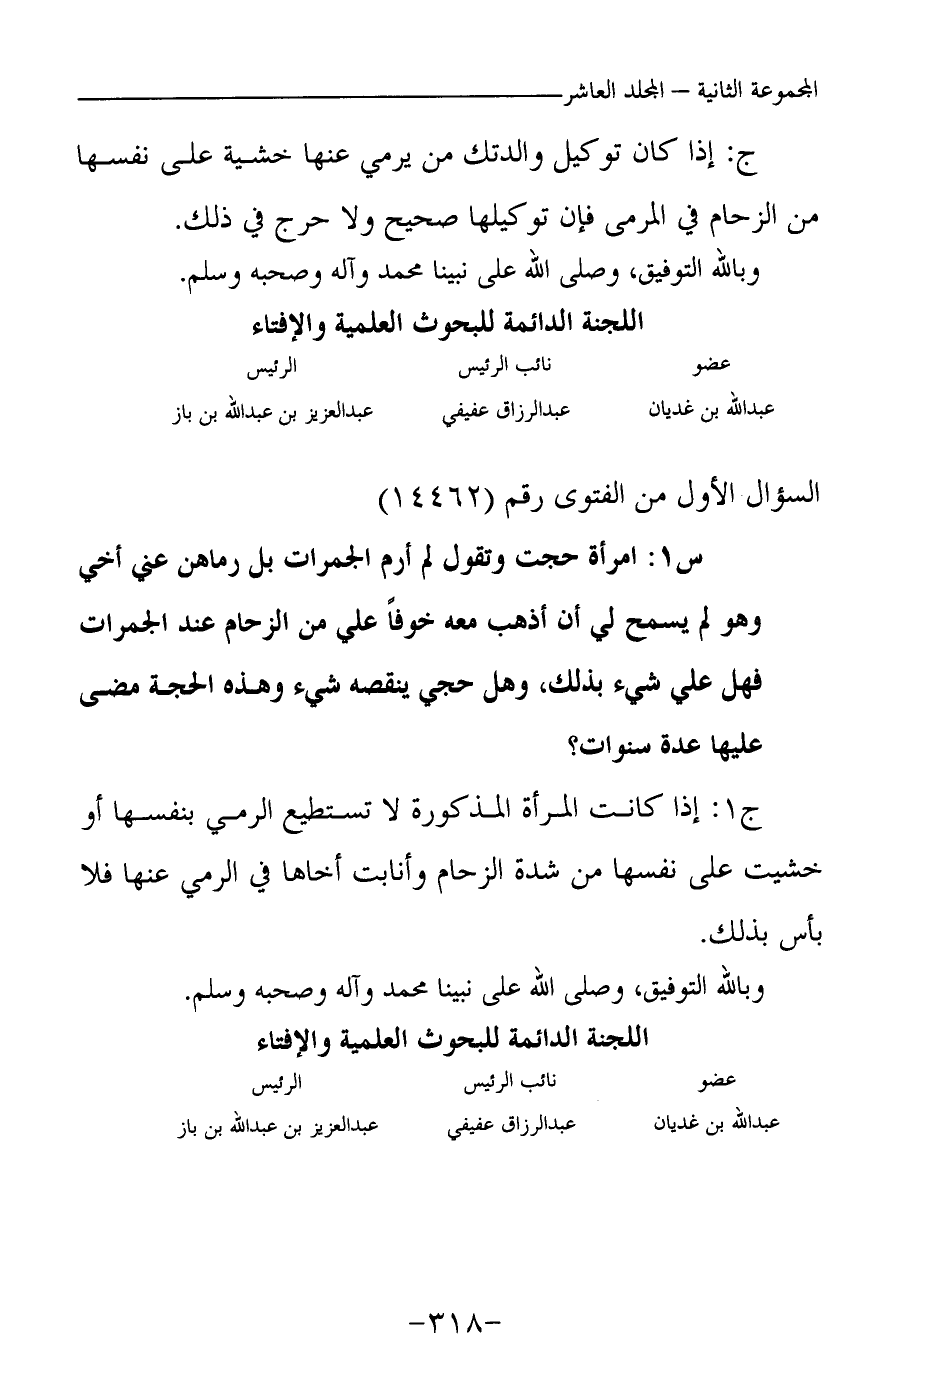 المجموعة الثانية – المجلد العاشر
ج: إذا كان توكيل والدتك من يرمي عنها خشية على نفسها
من الزحام في المرمى فإن توكيلها صحيح ولا حرج في ذلك.
وبالله التوفيق، وصلى الله على نبينا محمد وآله وصحبه وسلم.
اللجنة الدائمة للبحوث العلمية والإفتاء
عضو نائب الرئيس الرئيس
عبدالله بن غديان عبدالرزاق عفيفي عبدالعزيز بن عبدالله بن باز
السؤال الأول من الفتوى رقم (١٤٤٦٢)
س١: امرأة حجت وتقول لم أرم الجمرات بل رماهن عني أخي
وهو لم يسمح لي أن أذهب معه خوفاً علي من الزحام عند الجمرات
فهل علي شيء بذلك، وهل حجي ينقصه شيء وهذه الحجة مضى
عليها عدة سنوات؟
ج١: إذا كانت المرأة المذكورة لا تستطيع الرمي بنفسها أو
خشيت على نفسها من شدة الزحام وأنابت أخاها في الرمي عنها فلا
بأس بذلك.
وبالله التوفيق، وصلى الله على نبينا محمد وآله وصحبه وسلم.
اللجنة الدائمة للبحوث العلمية والإفتاء
عضو نائب الرئيس الرئيس
عبدالله بن غديان عبدالرزاق عفيفي عبدالعزيز بن عبدالله بن باز
–٣١٨–